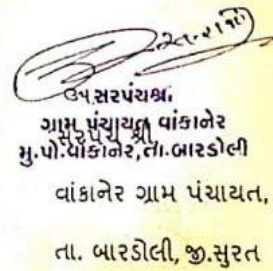 ઉપ સરપંચશ્રી
ગ્રામ પંચાયત વાંકાનેર
સરપંચ શ્રી
મુ.પો.વાંકાનેર, તા.બારડોલી
વાંકાનેર ગ્રામ પંચાયત,
તા. બારડોલી, જી.સુરત